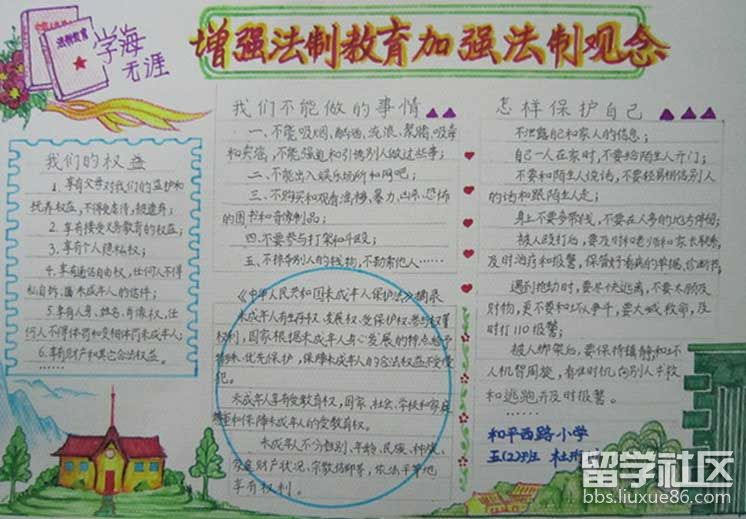 法律教育
学海
无涯
增强法制教育加强法制观念
我们的权益
1.享有父母对我们的监护和
抚养权益,不得虐待,
2.享有接受义务教育的权益;
3.享有个人隐私权;
4.享有通信自由权,任何人不得
私自拆 未成年人的信件;
5.享有人身、姓名、肖像权,任
何人不得体罚和变相体罚未成年人;
6.享有财产和其它合法权益。
……
我们不能做的事情
一、不能吸烟,酗酒,流浪、聚赌,吸毒
和卖淫,不能强迫和引诱别人做这些事;
二、不能出入娱乐场所和网吧;
三、不购买和观看淫秽、暴力、凶杀、恐怖
的图书和音像制品;
四、不要参与打架和斗殴;
五、不 别人的钱物,不勒索他人……
《中华人民共和国未成年人保护法》摘录
未成年人享有生存权、发展权、受保护权、参与权等
权利,国家根据未成年人身心发展的特点给予
特殊、优先保护,保障未成年人的合法权益不受侵
犯。
未成年人享有受教育权,国家、社会、学校和家庭
尊重和保障未成年人的受教育权。
未成年人不分性别、年龄、民族、种族、
家庭财产状况、宗教信仰等,依法平等地
享有权利。
怎样保护自己
不泄露自己和家人的信息;
自己一人在家时,不要给陌生人开门;
不要和陌生人说话,不要轻易相信别人
的话和跟陌生人走;
身上不要多带钱,不要在人多的地方停留;
被人殴打后,要及时和老师和家长联系,
及时治疗和报警,保管好看病的单据、诊断书;
遇到抢劫时,要尽快逃离,不要太顾及
财物,更不要和坏人争斗,要大喊救命,及
时打110报警;
被人绑架后,要保持镇静,和坏
人机智周旋,看准时机向别人求救
和逃跑并及时报警。
……
和平西路小学
五(2)班 杜
留学社区
bbs.liuxue86.com